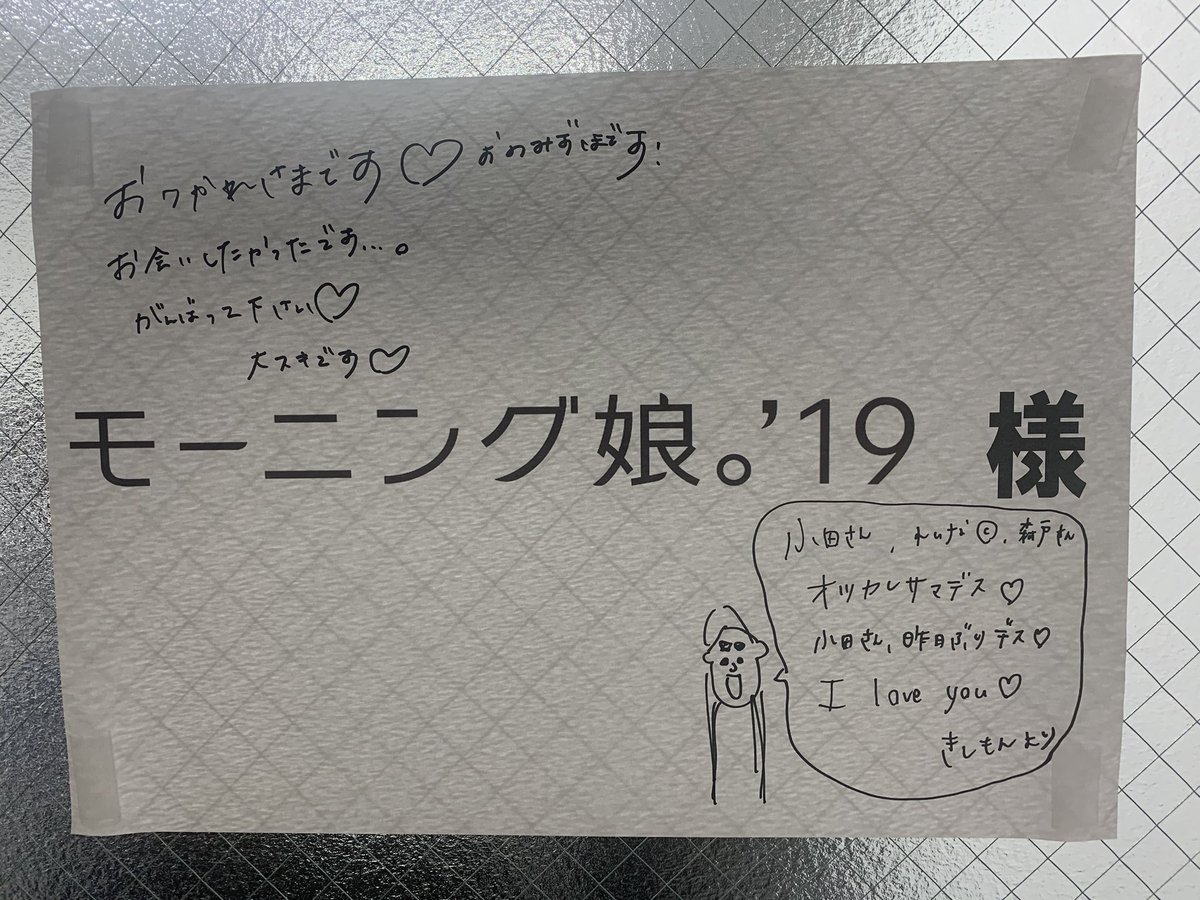 おつかれさまです♡ おのみずほです!
お会いしたかったです...。
がんばって下さい♡
大スキです♡
モーニング娘。'19 様
小田さん, れいなⒸ, 森戸さん
オツカレサマデス♡
小田さん, 昨日ぶりデス♡
I love you♡
きしもんより